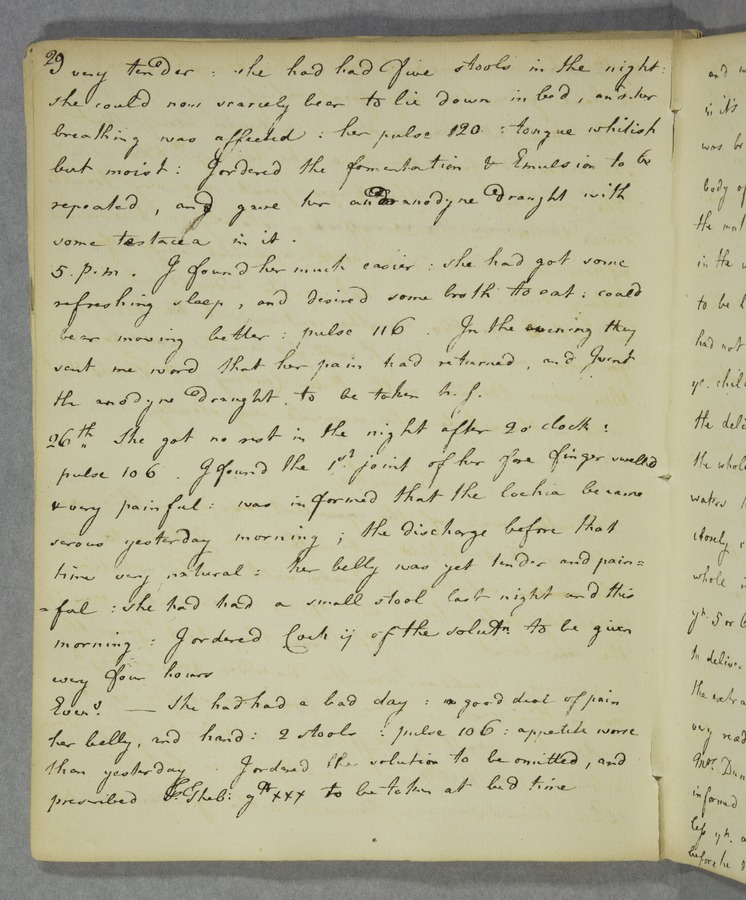 29
very tender : she had had five stools in the night :
she could now scarcely bear to lie down in bed, and her
breathing was affected : her pulse 120 : tongue whitish
but moist : I ordered the fomentation & Emulsion to be
repeated, and gave her an anodyne draught with
some testacea in it.
5. p.m. I found her much easier : she had got some
refreshing sleep, and desired some broth to eat : could
bear moving better : pulse 116. In the evening they
sent me word that her pain had returned, and I went
the anodyne draught, to be taken h. s.
26th She got no rest in the night after 2 o'clock :
pulse 106. I found the 1st joint of her fore finger swelled
& very painful : was informed that the lochia became
serous yesterday morning ; the discharge before that
time very natural : her belly was yet tender and pain=
=ful : she had had a small stool last night and this
morning : I ordered Coch ij of the solutn to be given
every four hours
Eveng. — She had had a bad day : a good deal of pain
her belly, and hand : 2 stools : pulse 106 : appetite worse
than yesterday. I ordered the solution to be omitted, and
prescribed T. Theb: gtt xxx to be taken at bed time
and w
in it's
was br
body of
the mat
in the
to be
had not
ye. chil
the deli
the whole
waters
closely
whole
yn. 5 or 6
to deliver
the extra
very read
Mrs. Dun
informed
less yn.
before he